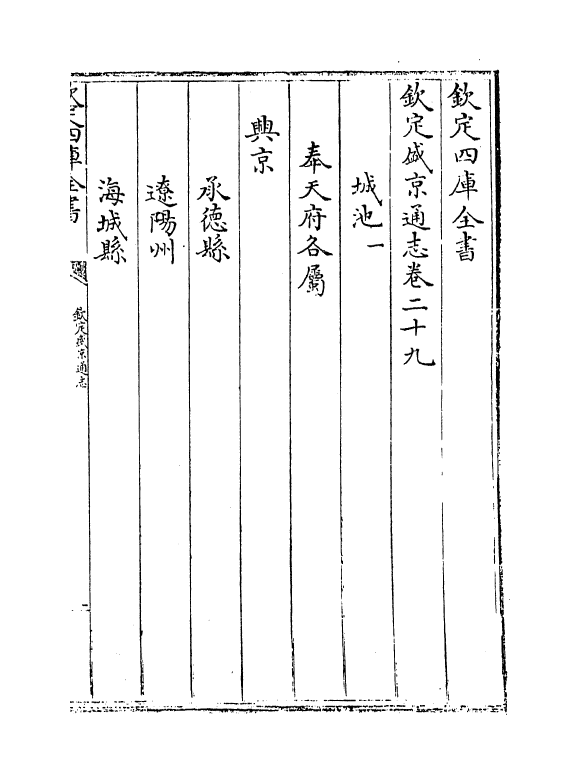 欽定四庫全書
欽定盛京通志卷二十九
城池一
奉天府各屬
興京
承德縣
遼陽州
海城縣
欽定四庫全書
欽定盛京通志
一